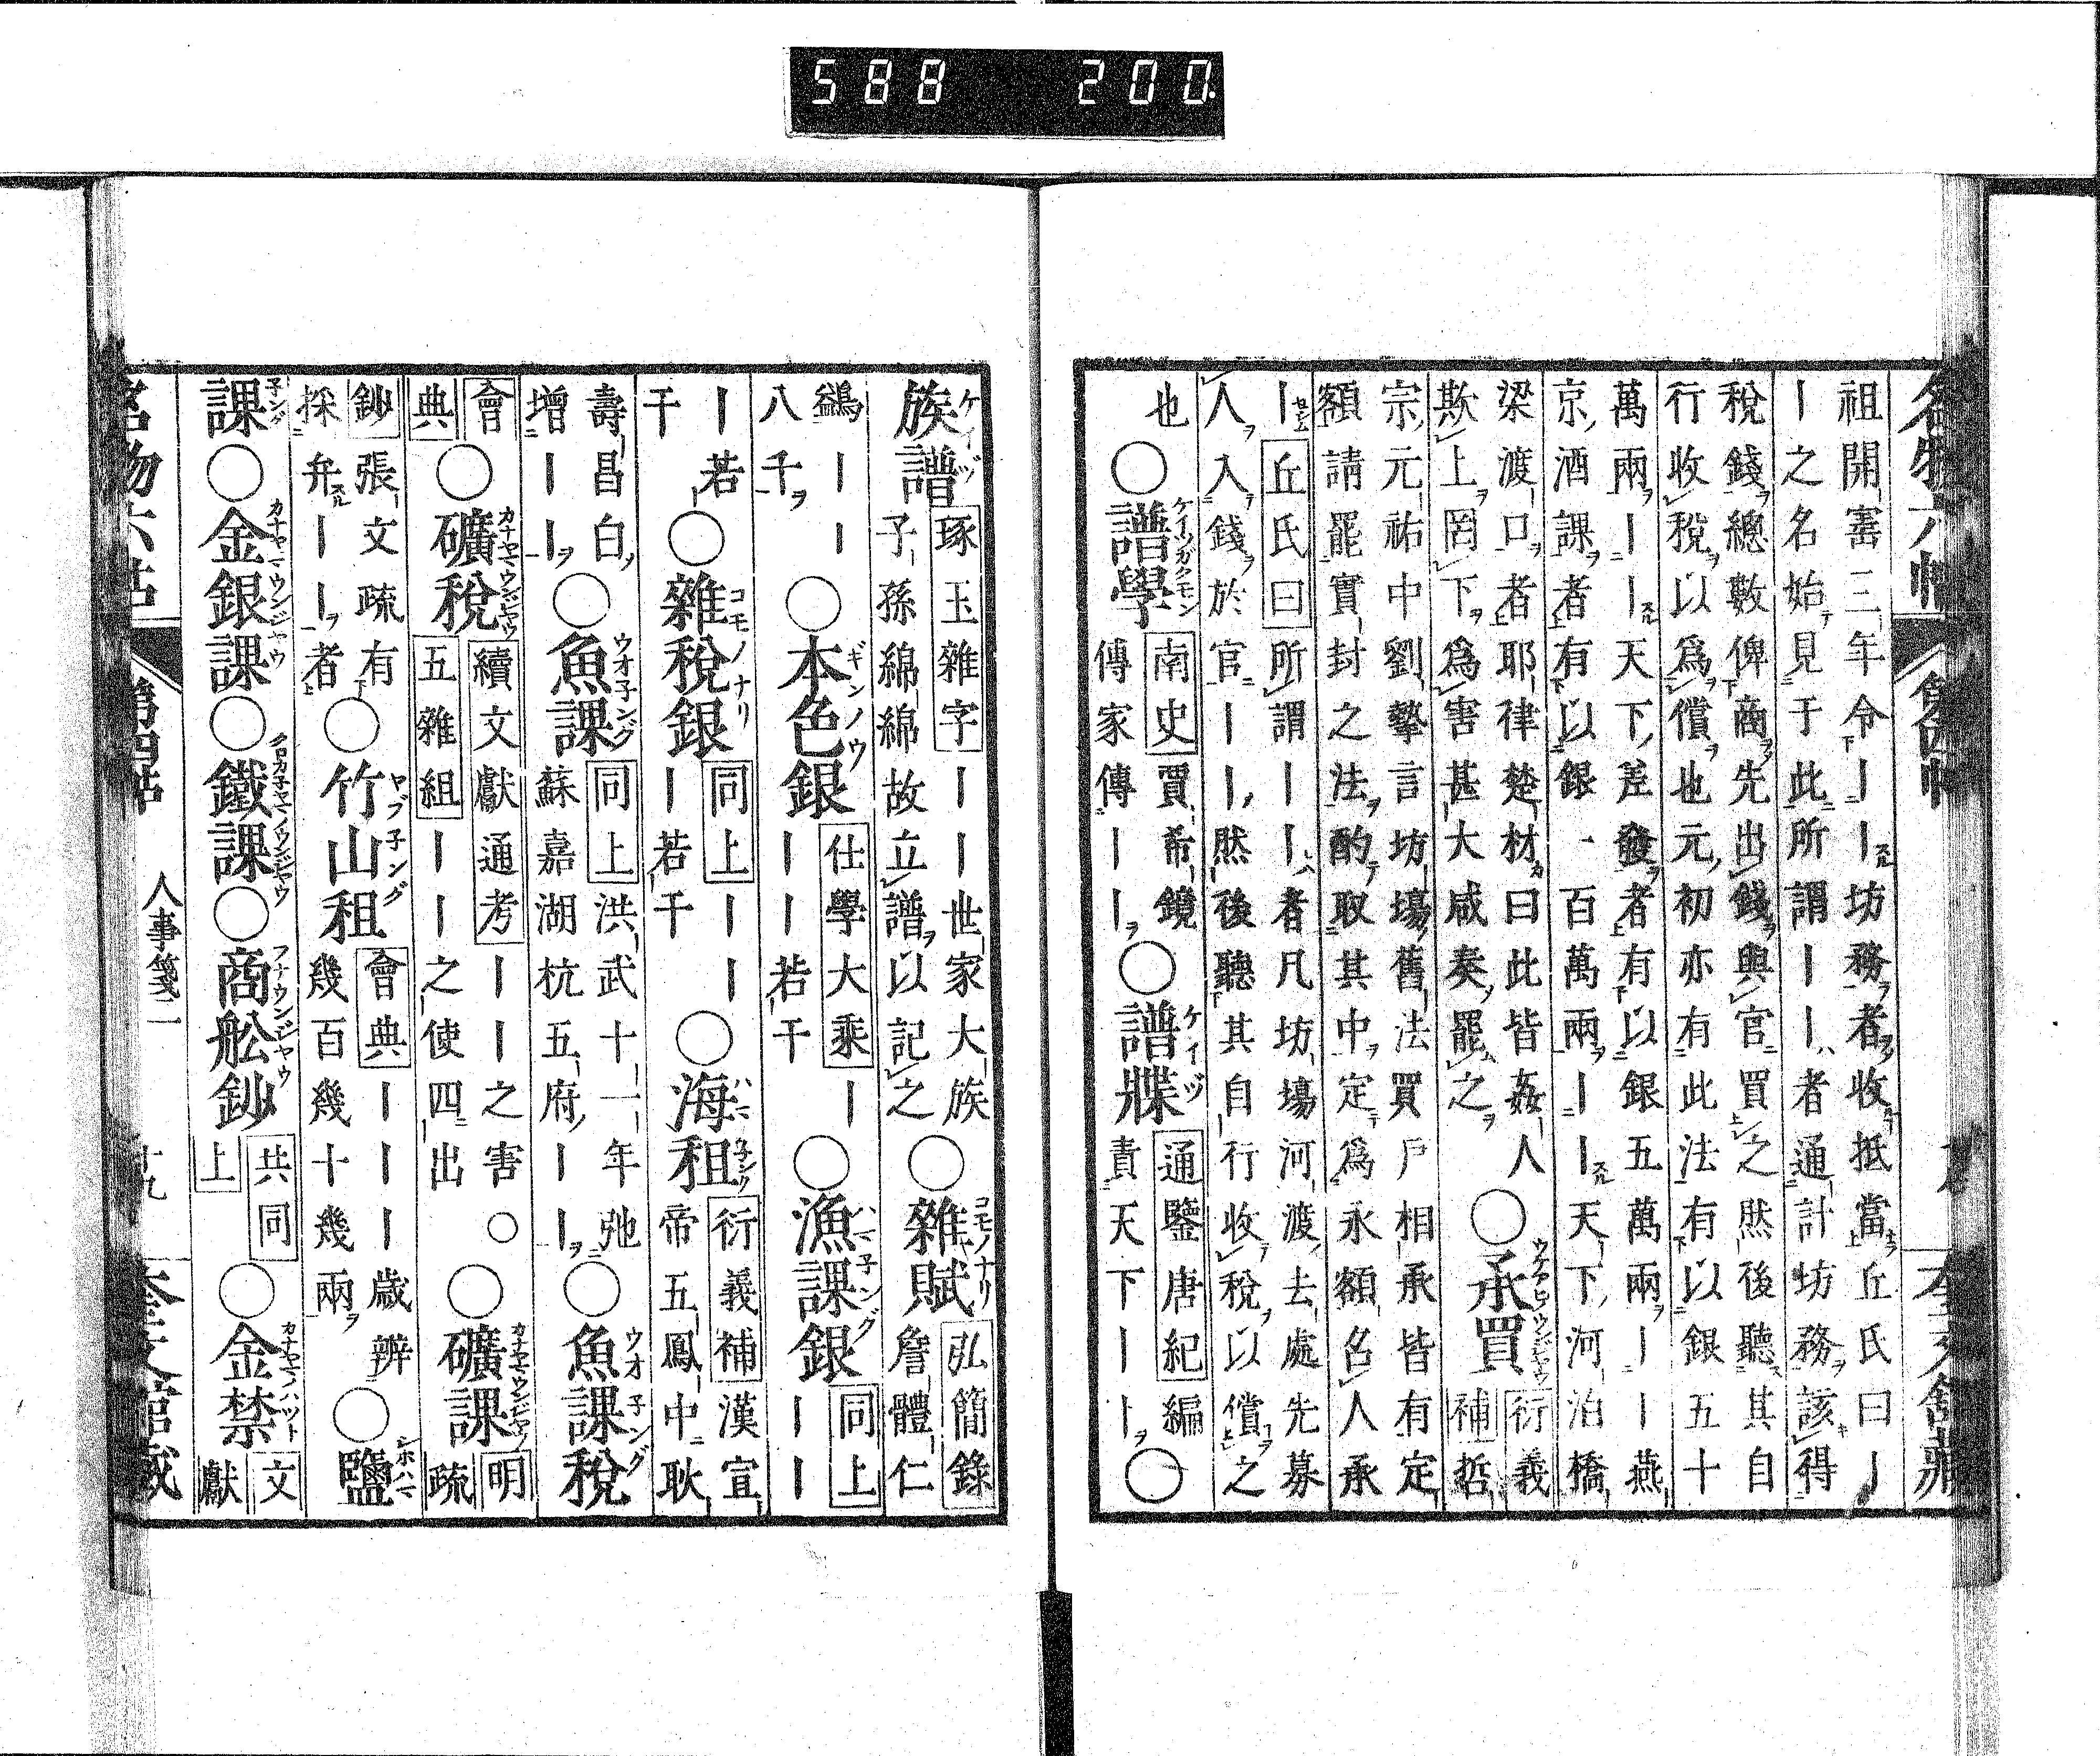 588 200.
祖開寳三年令ーー坊務者收抵當丘氏曰ー
ー之名始見于此所謂ーー者通計坊務該得
稅錢總數俾商先出錢與官買之然後聽其自
行收稅以爲償也元初亦有此法有以銀五十
萬兩ーー天下差發者有以銀五萬兩ーー燕
京酒課者有以銀一百萬兩ーー天下河泊橋
梁渡口者耶律楚材曰此皆姦人
欺上罔下爲害甚大咸奏罷之
○承買
衍義
補哲
宗元祐中劉摯言坊場舊法買戶相承皆有定
額請罷實封之法酌取其中定爲永額召人承
ー丘氏曰所謂ーー者凡坊場河渡去處先募
人入錢於官ーー然後聽其自行收稅以償之
也○譜學
南史賈希鏡
傳家傳ーー
○譜牒
通鑒唐紀編
責天下ーー
○
族譜
琢玉雜字ーー世家大族
子孫綿綿故立譜以記之
○雜賦
弘簡錄
詹體仁
鷁ーー
八千
○本色銀
仕學大乘ー
ーー若干
○漁課銀
同上
ーー
ー若
干
○雜稅銀
同上ーー
ー若干
○海租
衍義補漢宣
帝五鳳中耿
壽昌白
增ーー
○魚課
同上洪武十一年弛
蘇嘉湖杭五府ーー
○魚課稅
會
典
○礦稅
續文獻通考ーー之害○
五雜組ーー之使四出
○礦課
明
疏
鈔張文疏有
採弁ーー者
○竹山租
會典ーーー歲辨
幾百幾十幾兩
○鹽
課○金銀課○鐵課○商舩鈔
共同
上
○金禁
文
獻
名物六帖
第四帖
人事箋二
十九
奎文館藏